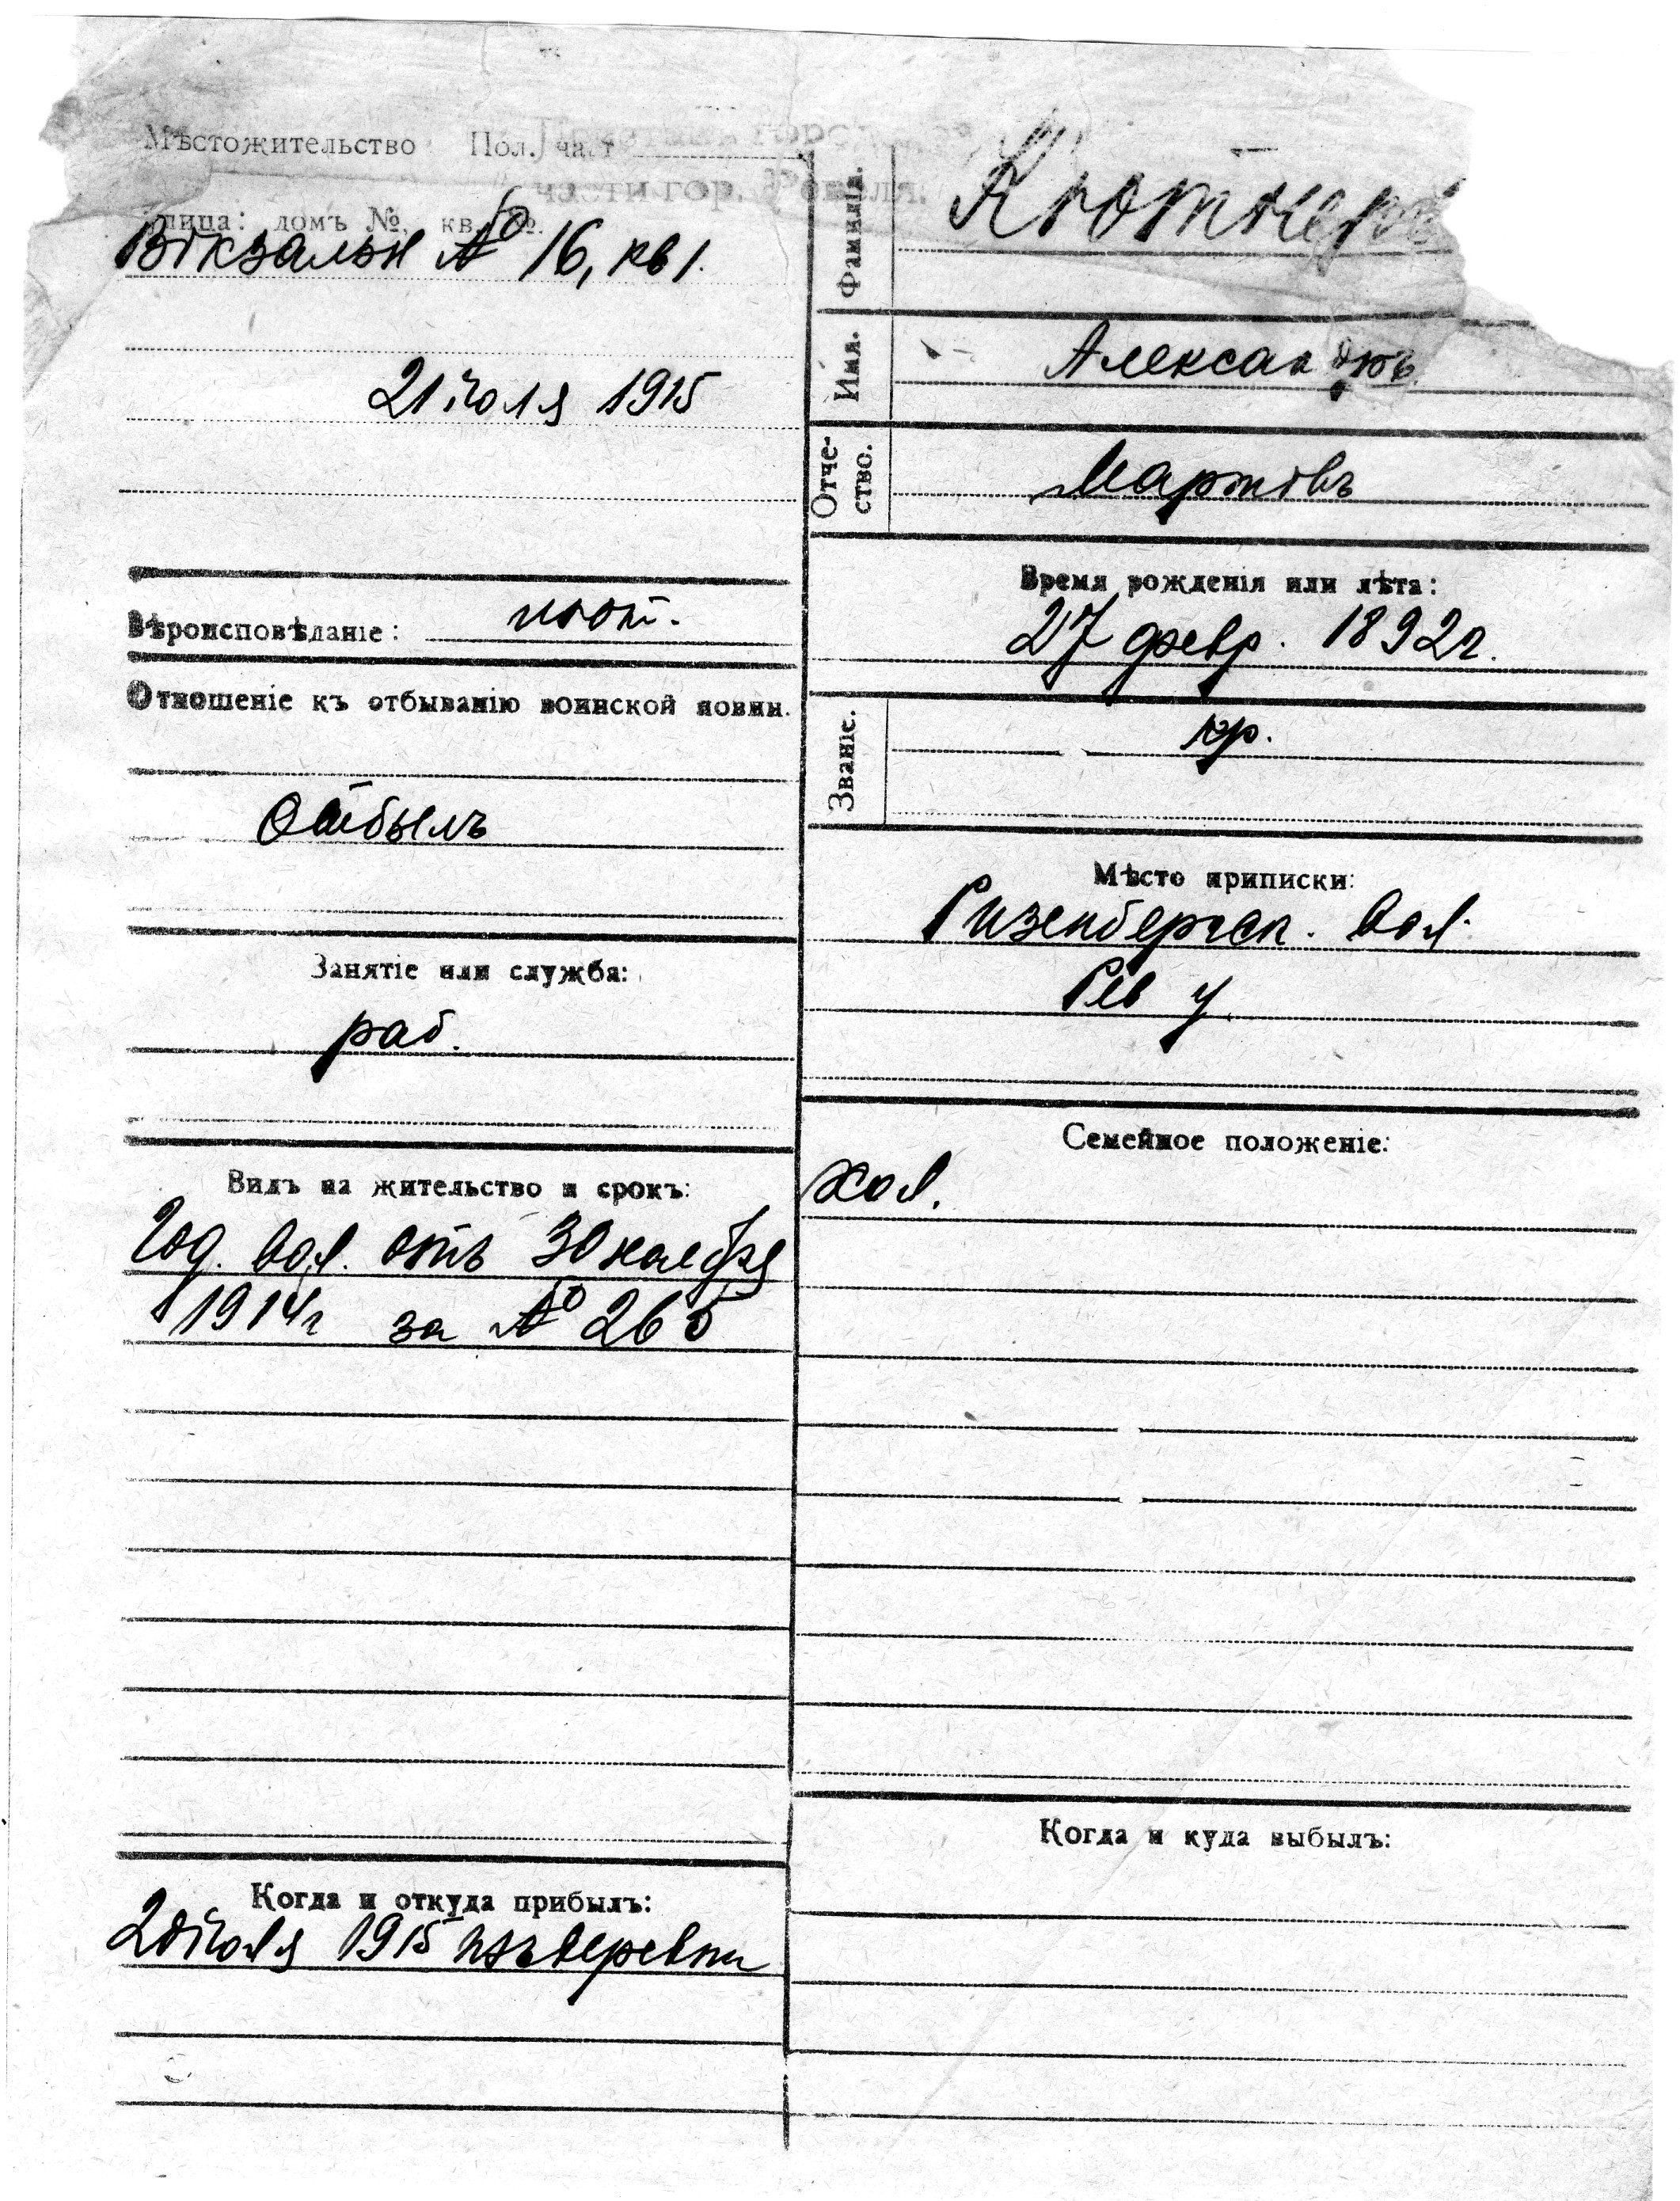 Мѣстожительство Пол. част
части гор. Ревеля.
Улица: домъ №, кв. №.
Вокзальн № 16, кв 1.
21 іюля 1915
Вѣроисповѣданіе: лют.
Отношеніе къ отбыванію воинской повин.
Отбылъ
Занятіе или служба:
раб.
Видъ на жительство и срокъ:
Год. вол. отъ 30 ноября
1914г за № 265
Когда и откуда прибылъ:
20 іюля 1915 изъ деревни
Фамилія.
Имя. Александръ
Отче-
ство. Мартовъ
Время рожденія или лѣта:
27 февр. 1892г.
Званіе. кр.
Мѣсто приписки:
Ризенбергск. вол.
Рев у.
Семейное положеніе:
хол.
Когда и куда выбылъ: